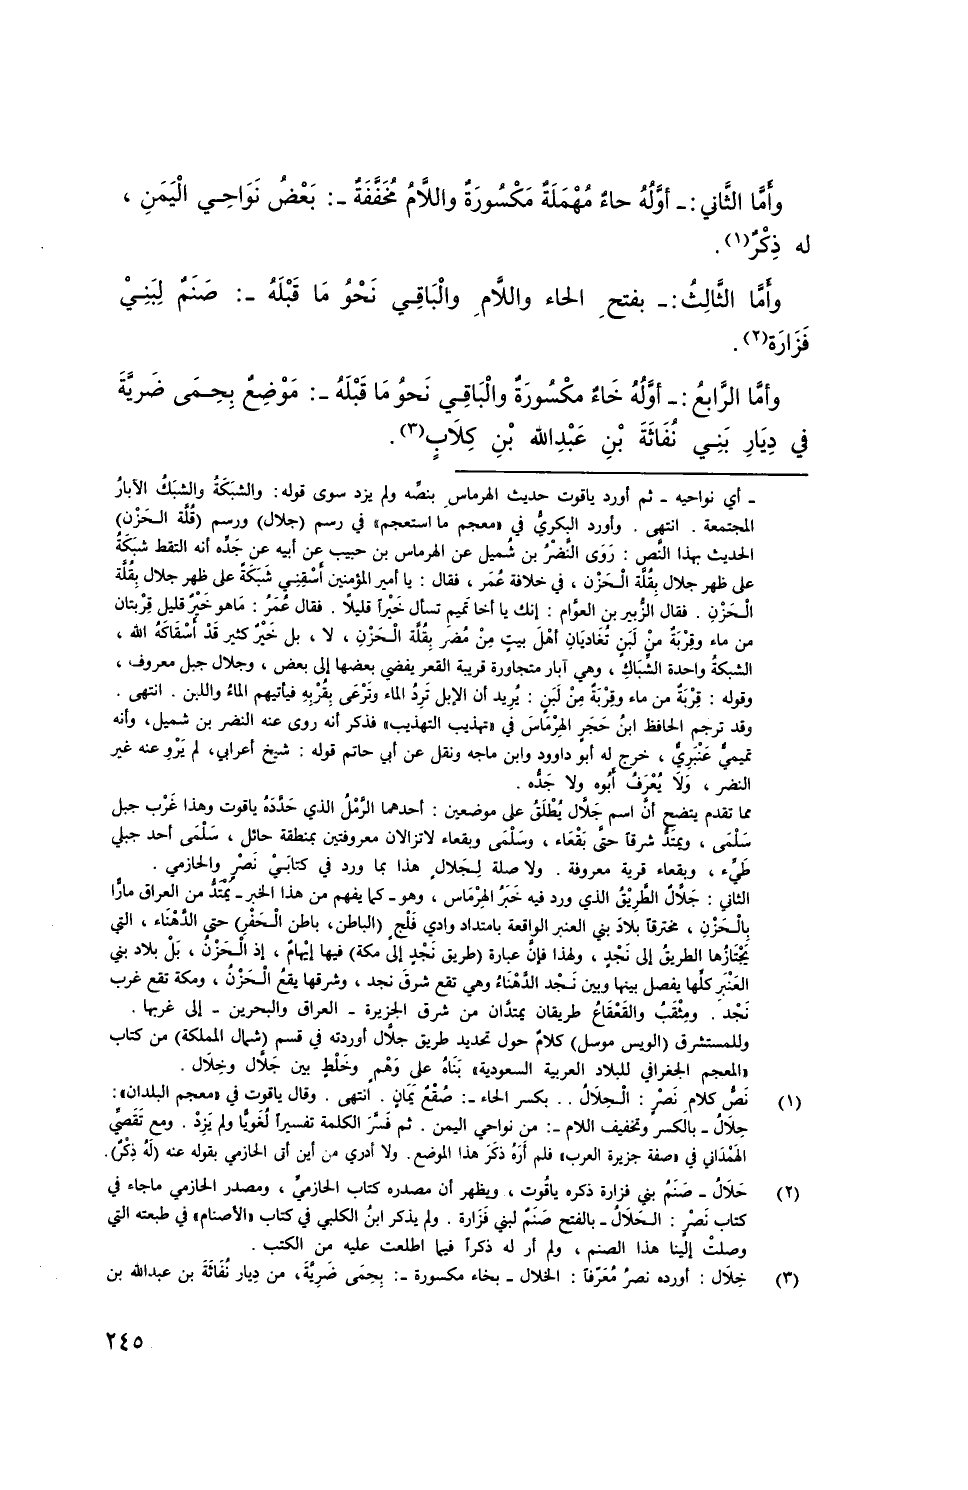 وأَمَّا الثَّاني :ـ أوَّلُهُ حاءٌ مُهْمَلَةٌ مَكْسُورَةٌ واللَّامُ مُخَفَّفَةٌ ـ: بَعْضُ نَوَاحِي الْيَمَنِ ،
له ذِكْرٌ(١) .
وأَمَّا الثَّالِثُ :ـ بفتحِ الحاء واللَّامِ والْبَاقِي نَحْوُ مَا قَبْلَهُ ـ: صَنَمٌ لِبَنِيْ
فَزَارَة(٢) .
وأمَّا الرَّابعُ :ـ أوَّلُهُ خَاءٌ مكْسُورَةٌ والْبَاقِي نَحوُ مَا قَبْلَهُ ـ: مَوْضِعٌ بِحِمَى ضَرِيَّةَ
في دِيَارِ بَنِي نُفَاثَةَ بْنِ عَبْدِالله بْنِ كِلَابٍ(٣) .
ـ أي نواحيه ـ ثم أورد ياقوت حديث الهرماسِ بنصِّه ولم يزد سوى قوله : والشبَكَةُ والشبَكُ الآبارُ
المجتمعة . انتهى . وأورد البكريُّ في «معجم ما استعجم» في رسم (جلال) ورسم (قُلَّة الحَزْن)
الحديث بهذا النَّص : رَوَى النَّضْرُ بن شُميل عن الهرماس بن حبيب عن أبيه عن جَدِّه أنه التقط شبكَةً
على ظهر جلال بِقُلَّة الْحَزْن ، في خلافة عُمَر ، فقال : يا أمير المؤمنين أَسْقِنِي شَبَكَةً على ظهر جلال بِقُلَّة
الْحَزْنِ . فقال الزُّبير بن العوَّام : إنك يا أخا تميم تسأل خَيْراً قليلاً . فقال عُمَرُ : مَاهو خَيْرٌ قليل قِرْبتان
من ماء وقِرْبَةٌ منْ لَبَنٍ تُغَاديَانِ أهْلَ بيتٍ مِنْ مُضَر بِقُلَّة الْحَزْنِ ، لا ، بل خَيْرٌ كثير قَدْ أسْقَاكَهُ الله ،
الشبكةُ واحدة الشِّبَاكِ ، وهي آبار متجاورة قريبة القعر يفضي بعضها إلى بعض ، وجلال جبل معروف ،
وقوله : قِرْبَةٌ من ماء وقِرْبَةٌ مِنْ لَبَنٍ : يُرِيد أن الإبل تَرِدُ الماء وتَرْعَى بِقُرْبِهِ فيأتيهم الماءُ واللبن . انتهى .
وقد ترجم الحافظ ابنُ حَجَرٍ الهِرْمَاسَ في «تهذيب التهذيب» فذكر أنه روى عنه النضر بن شميل، وأنه
تميميٌّ عَنْبَرِيٌّ ، خرج له أبو داوود وابن ماجه ونقل عن أبي حاتم قوله : شيخ أعرابي، لم يَرْوِ عنه غير
النضر ، وَلَا يُعْرَفُ أَبُوه ولا جَدُّه .
مما تقدم يتضح أنَّ اسم جَلَّال يُطْلَقُ على موضعين : أحدهما الرَّمْلُ الذي حَدَّدَهُ ياقوت وهذا غَرْب جبل
سَلْمَى ، ويمتَدُّ شرقاً حتَّى بَقْعَاء ، وسَلْمَى وبقعاء لاتزالان معروفتين بمنطقة حائل ، سَلْمَى أحد جبلي
طَيِّء ، وبقعاء قرية معروفة . ولا صلة لِجَلالٍ هذا بما ورد في كتابَيْ نَصْرٍ والحازمي .
الثاني : جَلَّالٌ الطَّرِيْقُ الذي ورد فيه خَبَرُ الهِرْمَاس ، وهو ـ كما يفهم من هذا الخبر ـ يَمْتَدُّ من العراق مارًّا
بِالْحَزْنِ ، مخترقاً بلادَ بني العنبر الواقعة بامتداد وادي فَلْجٍ (الباطن، باطن الْحَفْرِ) حتى الدَّهْنَاء ، التي
يَجْتَازُها الطريقُ إلى نَجْدٍ ، ولهذا فإنَّ عبارة (طريق نَجْدٍ إلى مكة) فيها إيْهامٌ ، إذ الْحَزْنُ ، بَلْ بلاد بني
العَنْبَرِ كلِّها يفصل بينها وبين نَجْد الدَّهْنَاءُ وهي تقع شرقَ نجد ، وشرقها يقعُ الْحَزْنُ ، ومكة تقع غرب
نَجْد . ومِثْقَبُ والقَعْقَاعُ طريقان يمتدَّان من شرق الجزيرة ـ العراق والبحرين ـ إلى غربها .
وللمستشرق (الويس موسل) كلامٌ حول تحديد طريق جلَّال أوردته في قسم (شمال المملكة) من كتاب
«المعجم الجغرافي للبلاد العربية السعودية» بَنَاهُ على وَهْمٍ وخَلْطٍ بين جَلَّال وخِلَال .
(١) نَصُّ كلامِ نَصْرٍ : الْحِلَالُ .. بكسر الحاء ـ: صُقْعٌ يَمَانٍ . انتهى . وقال ياقوت في «معجم البلدان» :
حِلَالُ ـ بالكسر وتخفيف اللام ـ: من نواحي اليمن . ثم فَسَّرَ الكلمة تفسيراً لُغَويًّا ولم يَزِدْ . ومع تَقَصِّي
الهَمْدَاني في «صفة جزيرة العرب» فلم أَرَهُ ذكَرَ هذا الموضع. ولا أدري من أين أتى الحازمي بقوله عنه (لَهُ ذِكْرٌ).
(٢) حَلَالُ ـ صَنَمُ بني فزارة ذكره ياقُوت ، ويظهر أن مصدره كتاب الحازميِّ ، ومصدر الحازمي ماجاء في
كتاب نَصْرٍ : الحَلَالُ ـ بالفتح صَنَمٌ لبني فَزَارة . ولم يذكر ابنُ الكلبي في كتاب «الأصنام» في طبعته التي
وصلتْ إلَينا هذا الصنم ، ولم أر له ذكراً فيما اطلعت عليه من الكتب .
(٣) خِلَال : أورده نصرٌ مُعَرَّفاً : الخلال ـ بخاء مكسورة ـ: بِحِمَى ضَرِيَّةَ، من دِيار نُفَاثَةَ بن عبدالله بن
٢٤٥